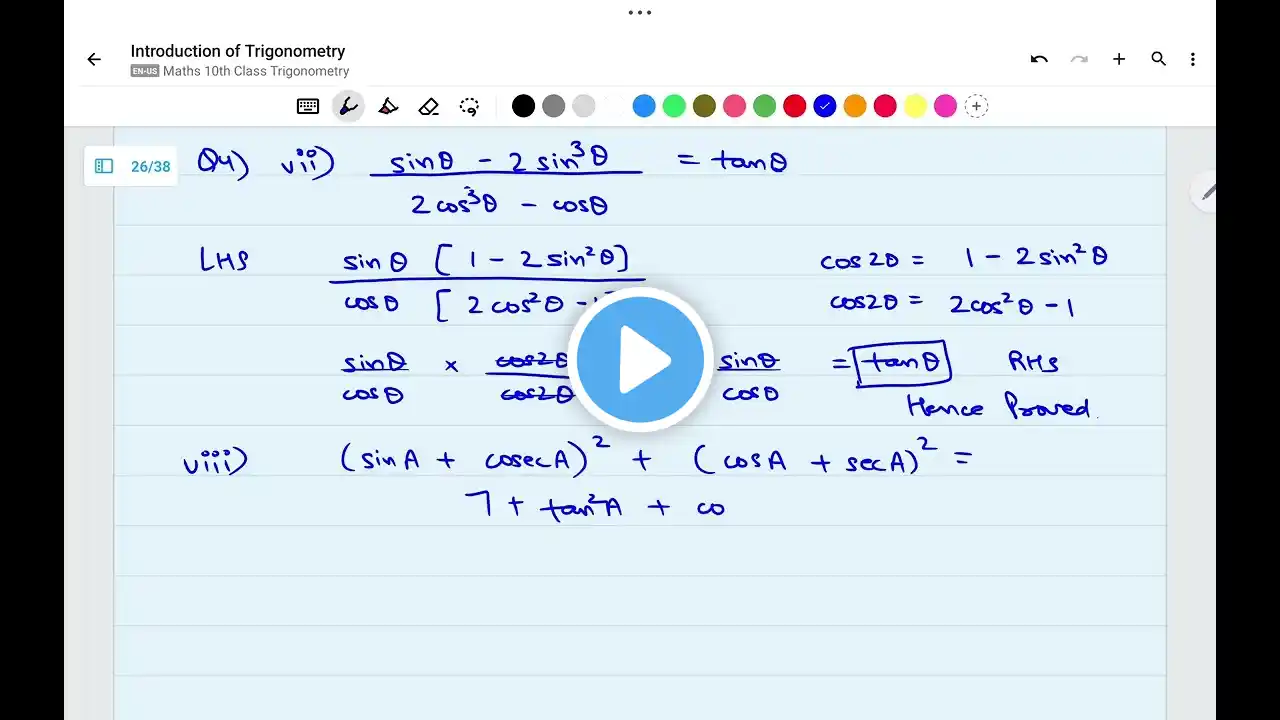 Introduction of Trigonometry
EN-US Maths 10th Class Trigonometry
26/38
Q4) vii) sinθ - 2 sin³θ = tanθ
2 cos³θ - cosθ
LHS sinθ [1 - 2 sin²θ] cos2θ = 1 - 2 sin²θ
cosθ [2 cos²θ - cos2θ = 2cos²θ - 1
sinθ × cos2θ sinθ = tanθ RHS
cosθ cos2θ cosθ Hence Proved.
viii) (sinA + cosecA)² + (cosA + secA)² =
7 + tan²A + co